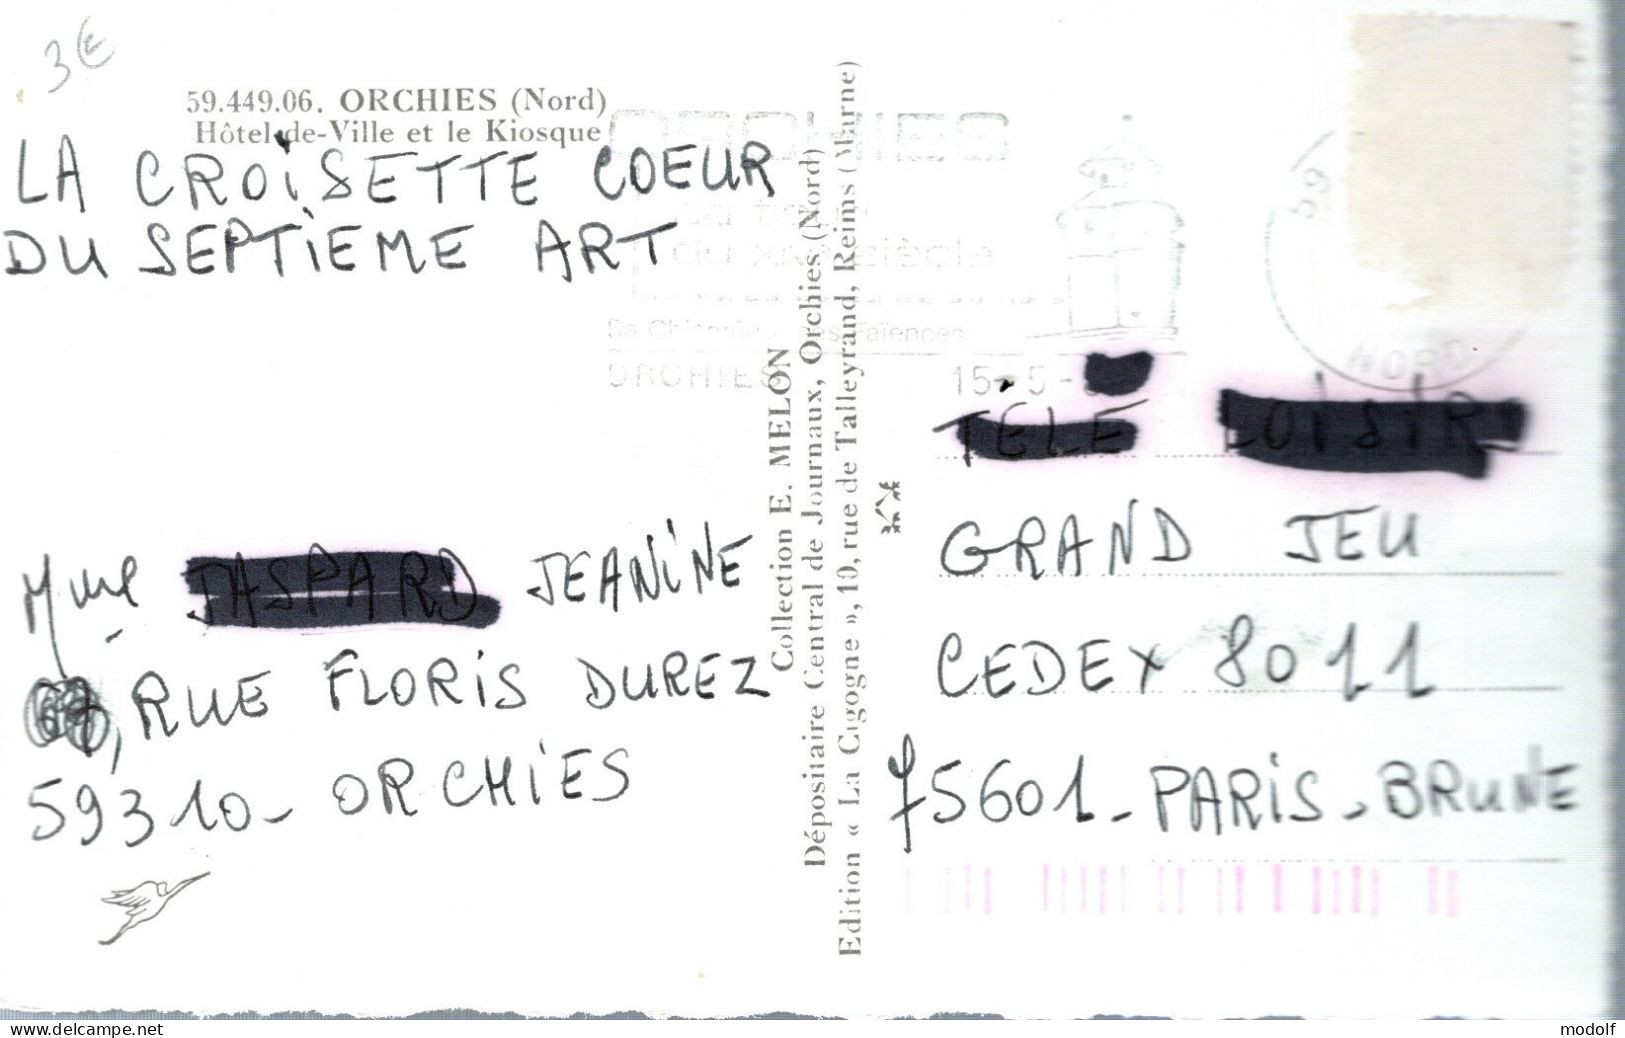 3€
59.449.06. ORCHIES (Nord)
Hôtel-de-Ville et le Kiosque
LA CROISETTE COEUR
DU SEPTIEME ART
Mme JEANINE
RUE FLORIS DUREZ
59310 - ORCHIES
Collection E. MELON
Dépositaire Central de Journaux, Orchies (Nord)
Edition « La Cigogne », 10, rue de Talleyrand, Reims (Marne)
ORCHIES
du siècle
Faïences
ORCHIES
15 - 5 -
59
NORD
TELE LOISIRS
GRAND JEU
CEDEX 8011
75601 - PARIS - BRUNE
www.delcampe.net
modolf